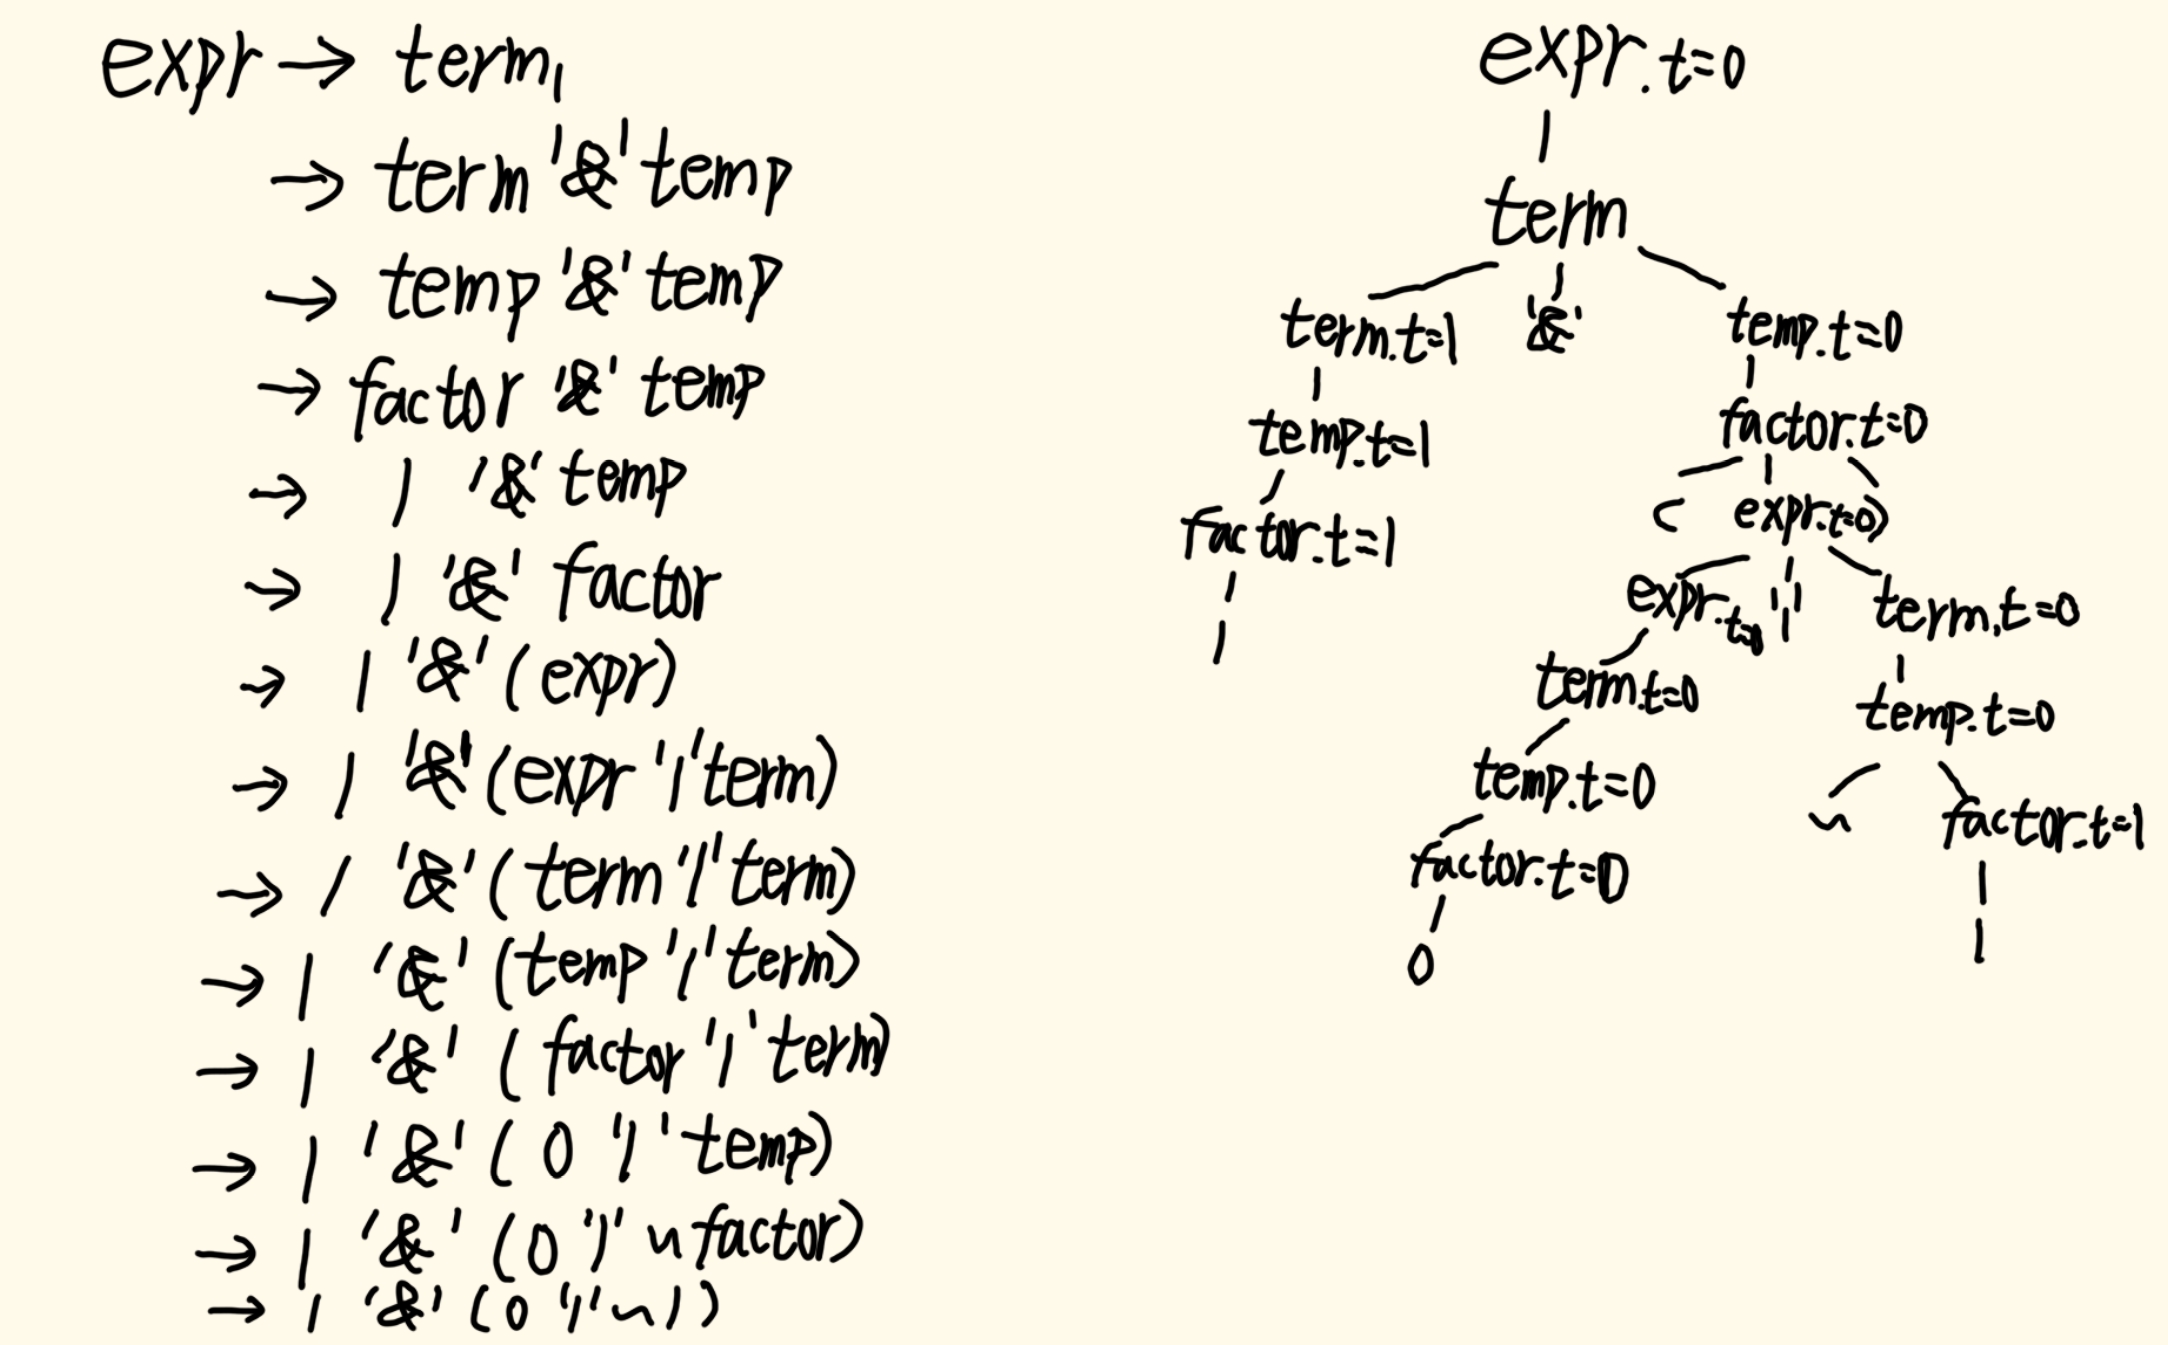 expr → term₁
→ term '&' temp
→ temp '&' temp
→ factor '&' temp
→ 1 '&' temp
→ 1 '&' factor
→ 1 '&' (expr)
→ 1 '&' (expr '|' term)
→ 1 '&' (term '|' term)
→ 1 '&' (temp '|' term)
→ 1 '&' (factor '|' term)
→ 1 '&' (0 '|' temp)
→ 1 '&' (0 '|' ~factor)
→ 1 '&' (0 '|' ~1)
expr.t=0
term
term.t=1 '&' temp.t=0
temp.t=1 factor.t=0
factor.t=1 ( expr.t=0 )
1 expr.t=0 '|' term.t=0
term.t=0 temp.t=0
temp.t=0 ~ factor.t=1
factor.t=0 1
0